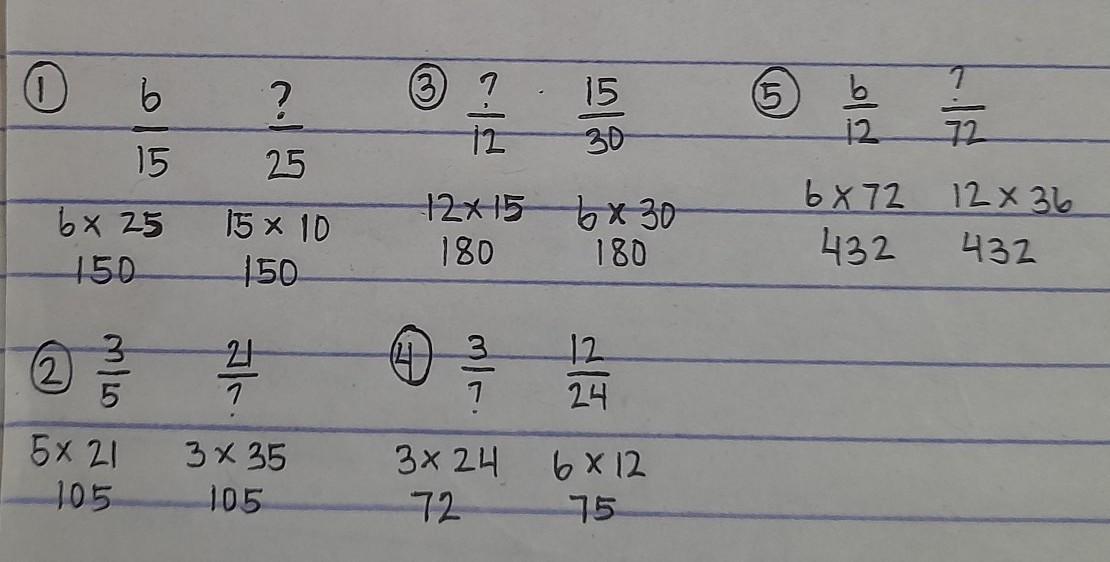 ① 6/15 ?/25
6 x 25 15 x 10
150 150
② 3/5 21/?
5 x 21 3 x 35
105 105
③ ?/12 15/30
12 x 15 6 x 30
180 180
④ 3/? 12/24
3 x 24 6 x 12
72 75
⑤ 6/12 ?/72
6 x 72 12 x 36
432 432